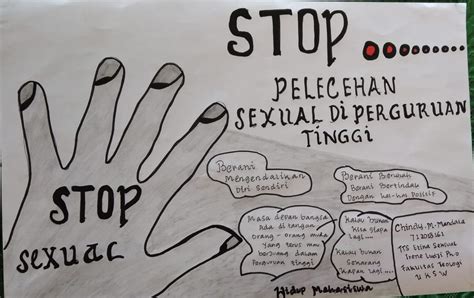 STOP
PELECEHAN
SEXUAL DI PERGURUAN
TINGGI
STOP
sexual
Berani
Mengendalikan
Diri Sendiri
Berani Berubah
Berani Bertindak
Dengan Positif
Masa depan bangsa
Ada di tangan
orang - orang muda
yang terus
berjuang dalam
Perguruan tinggi
Kalau bukan
Kita siapa
lagi....
Kalau bukan
Sekarang
Kapan lagi....
Chindy. M. Mandala
712018161
TTS Etika Sexual
Irene Ludji Ph.D
Fakultas Teologi
UKSW
Hidup Mahasiswa